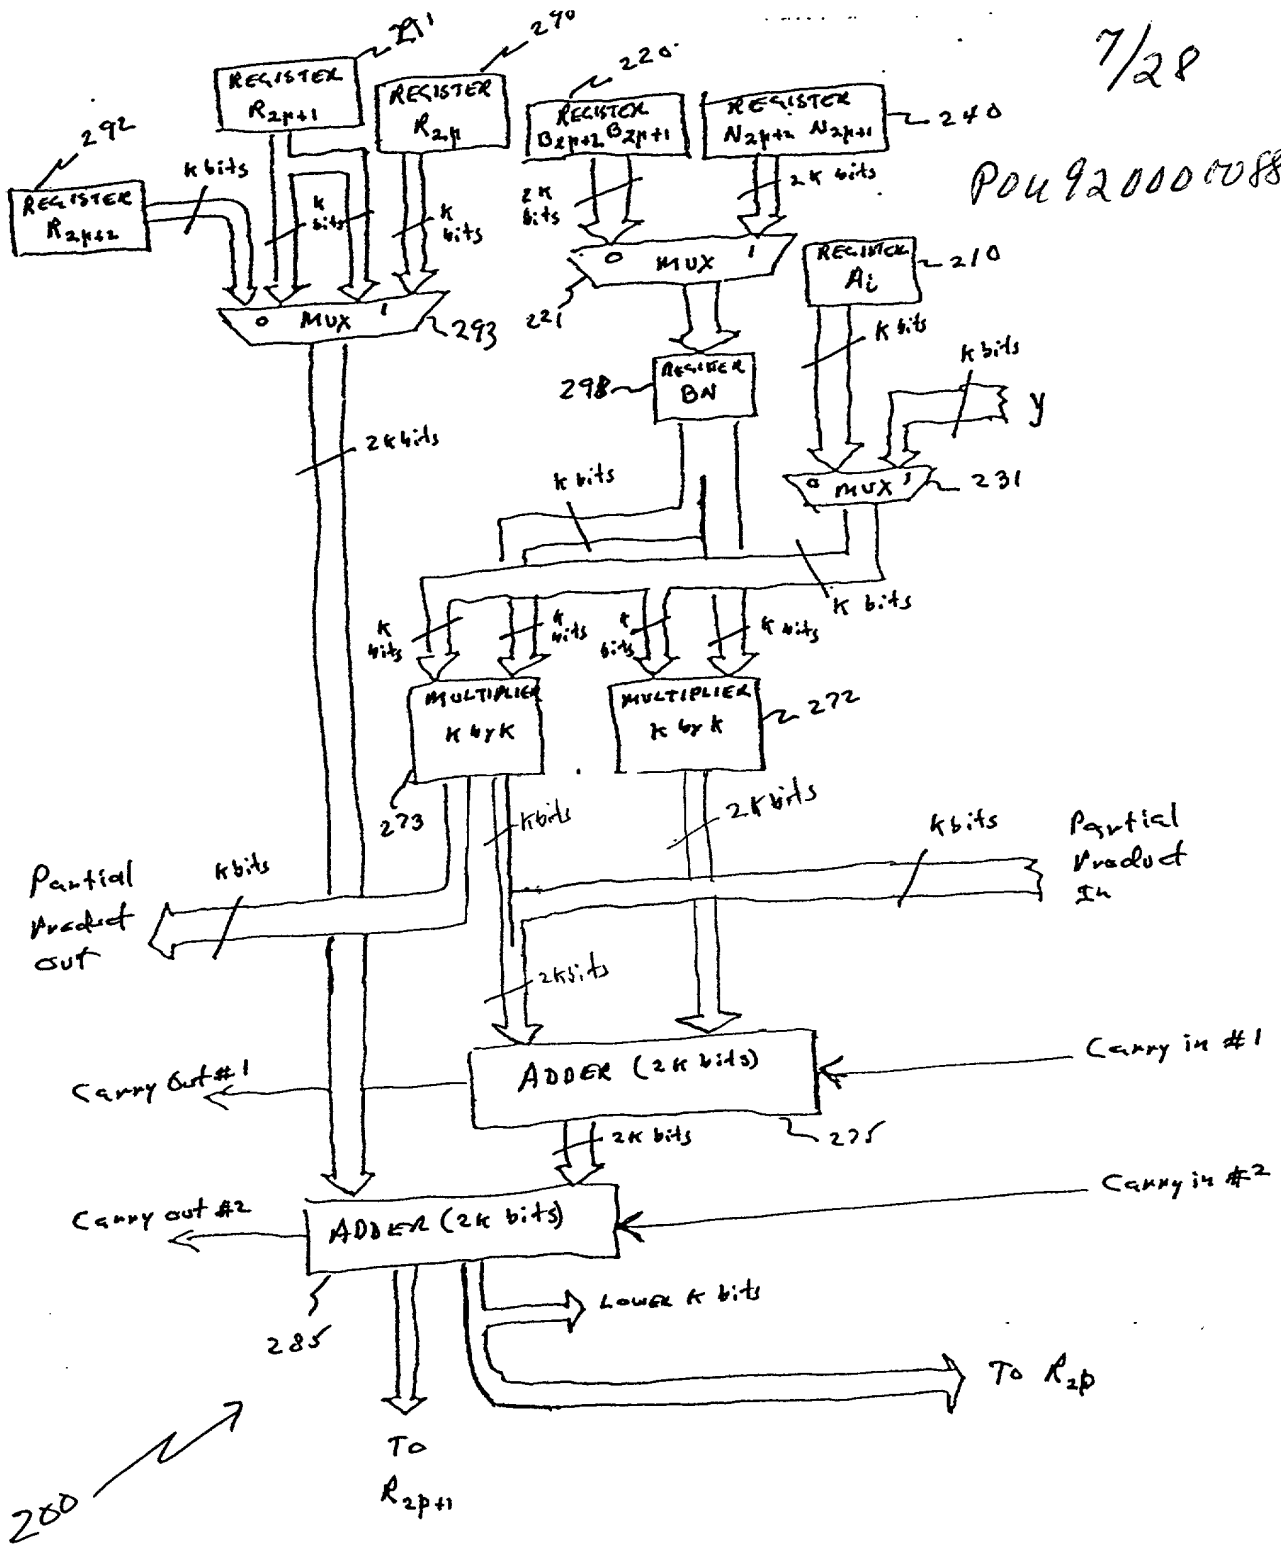 7/28
POU920000088
291
290
220
REGISTER
R2p+1
REGISTER
R2p
REGISTER
B2p+2 B2p+1
REGISTER
N2p+2 N2p+1
240
292
K bits
REGISTER
R2p+2
K bits
K bits
2K bits
2K bits
0 MUX 1
293
0 MUX 1
221
REGISTER
Ai
210
K bits
K bits
y
298
REGISTER
BN
2K bits
0 MUX 1
231
K bits
K bits
K bits
K bits
K bits
K bits
MULTIPLIER
K by K
MULTIPLIER
K by K
272
273
K bits
2K bits
K bits
Partial
Product
In
Partial
Product
Out
K bits
2K bits
Carry Out #1
ADDER (2K bits)
Carry in #1
2K bits
275
Carry out #2
ADDER (2K bits)
Carry in #2
285
LOWER K bits
TO R2p
TO
R2p+1
200